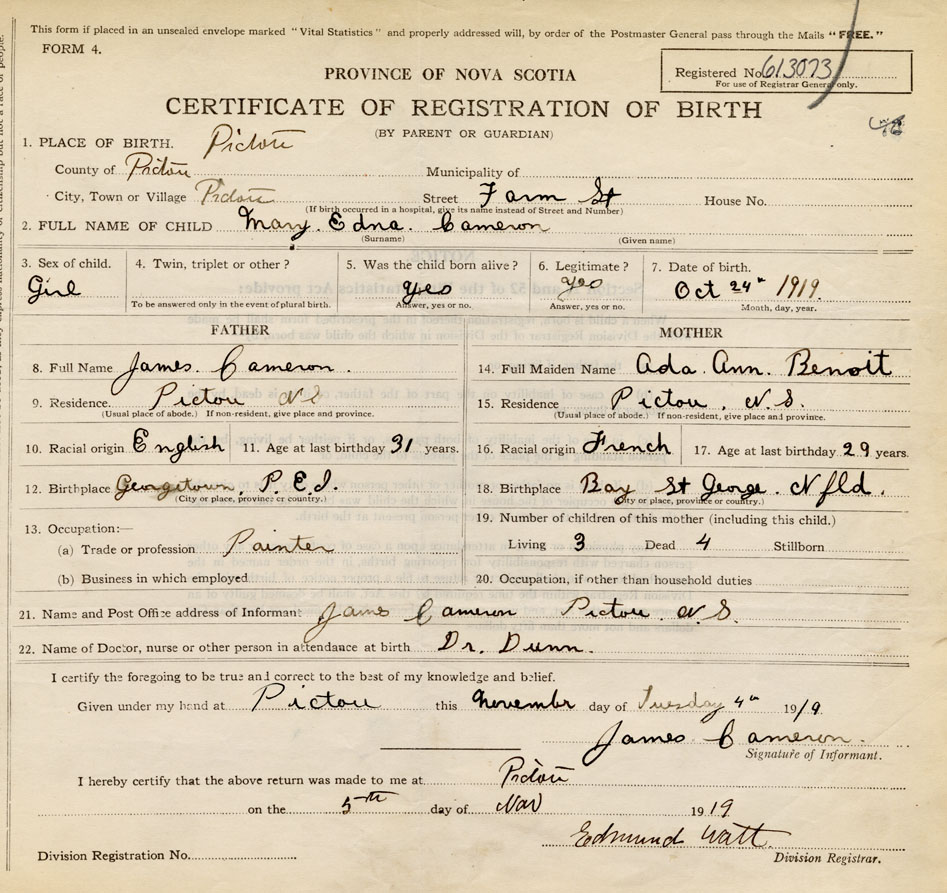 This form if placed in an unsealed envelope marked "Vital Statistics" and properly addressed will, by order of the Postmaster General pass through the Mails "FREE."
FORM 4.
Registered No. 613073
For use of Registrar General only.
PROVINCE OF NOVA SCOTIA
CERTIFICATE OF REGISTRATION OF BIRTH
(BY PARENT OR GUARDIAN)
1. PLACE OF BIRTH. Pictou
County of Pictou Municipality of
City, Town or Village Pictou Street Farm St House No.
(If birth occurred in a hospital, give its name instead of Street and Number)
2. FULL NAME OF CHILD Mary. Edna. Cameron
(Surname) (Given name)
3. Sex of child. 4. Twin, triplet or other? 5. Was the child born alive? 6. Legitimate? 7. Date of birth.
Girl yes yes Oct 24th 1919.
To be answered only in the event of plural birth. Answer, yes or no. Answer, yes or no. Month, day, year.
FATHER MOTHER
8. Full Name James. Cameron. 14. Full Maiden Name Ada. Ann. Benoit
9. Residence. Pictou NS 15. Residence Pictou, N.S.
(Usual place of abode.) If non-resident, give place and province. (Usual place of abode.) If non-resident, give place and province.
10. Racial origin English 11. Age at last birthday 31 years. 16. Racial origin French 17. Age at last birthday 29 years.
12. Birthplace Georgetown, P.E.I. 18. Birthplace Bay St George. Nfld.
(City or place, province or country.) (City or place, province or country.)
13. Occupation:— 19. Number of children of this mother (including this child.)
(a) Trade or profession Painter Living 3 Dead 4 Stillborn
(b) Business in which employed 20. Occupation, if other than household duties
21. Name and Post Office address of Informant James Cameron Pictou N.S.
22. Name of Doctor, nurse or other person in attendance at birth Dr. Dunn.
I certify the foregoing to be true and correct to the best of my knowledge and belief.
Given under my hand at Pictou this November day of Tuesday 4th 1919.
James Cameron.
Signature of Informant.
I hereby certify that the above return was made to me at Pictou
on the 5th day of Nov 1919
Edmund Watt
Division Registration No. Division Registrar.